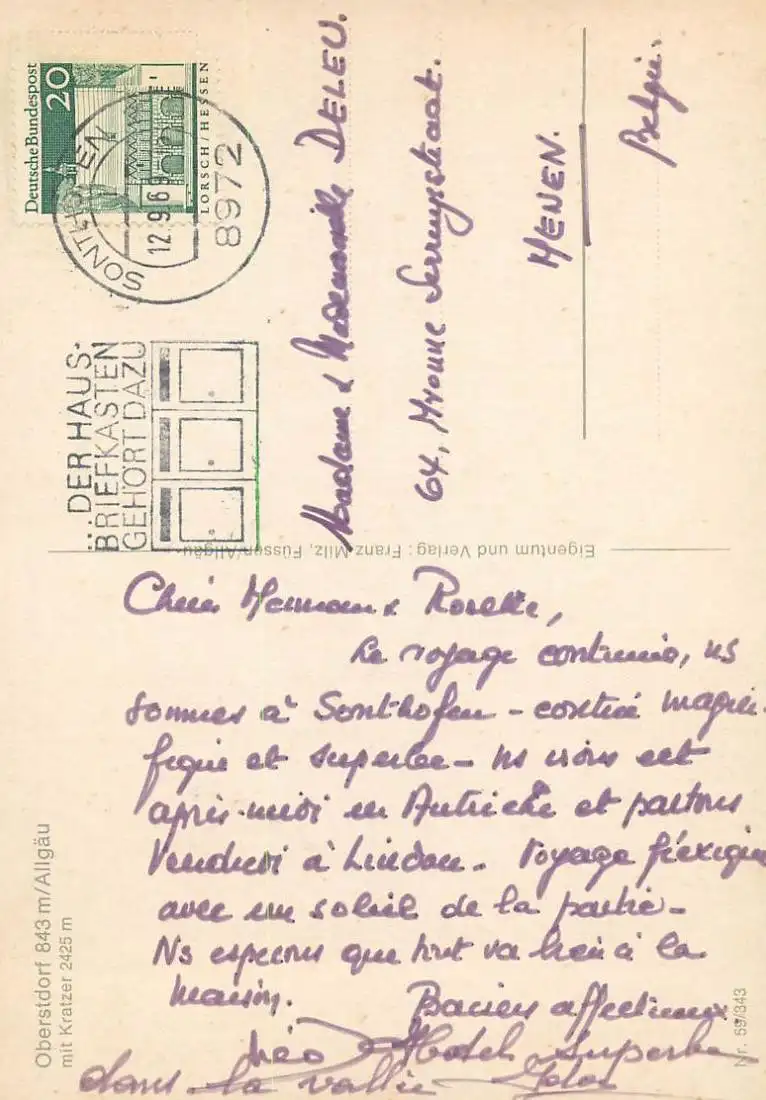 Deutsche Bundespost
20
LORSCH/HESSEN
SONTHOFEN
12.9.6
8972
...DER HAUS-
BRIEFKASTEN
GEHÖRT DAZU
Madame & Mademoiselle DELEU.
64, Yvonne Serruysstraat.
MENEN.
Belgie.
Eigentum und Verlag: Franz Milz, Füssen/Allgäu
Oberstdorf 843 m/Allgäu
mit Kratzer 2425 m
Nr. 59/343
Chère Maman & Rosette,
Le voyage continue, ns
sommes à Sonthofen - contrée magni-
fique et superbe - ns irons cet
après-midi en Autriche et partons
Vendredi à Lindau. Voyage
avec un soleil de la partie -
Ns esperons que tout va bien à la
maison. Baisers affectueux.
Léo Hotel superbe
dans la vallée